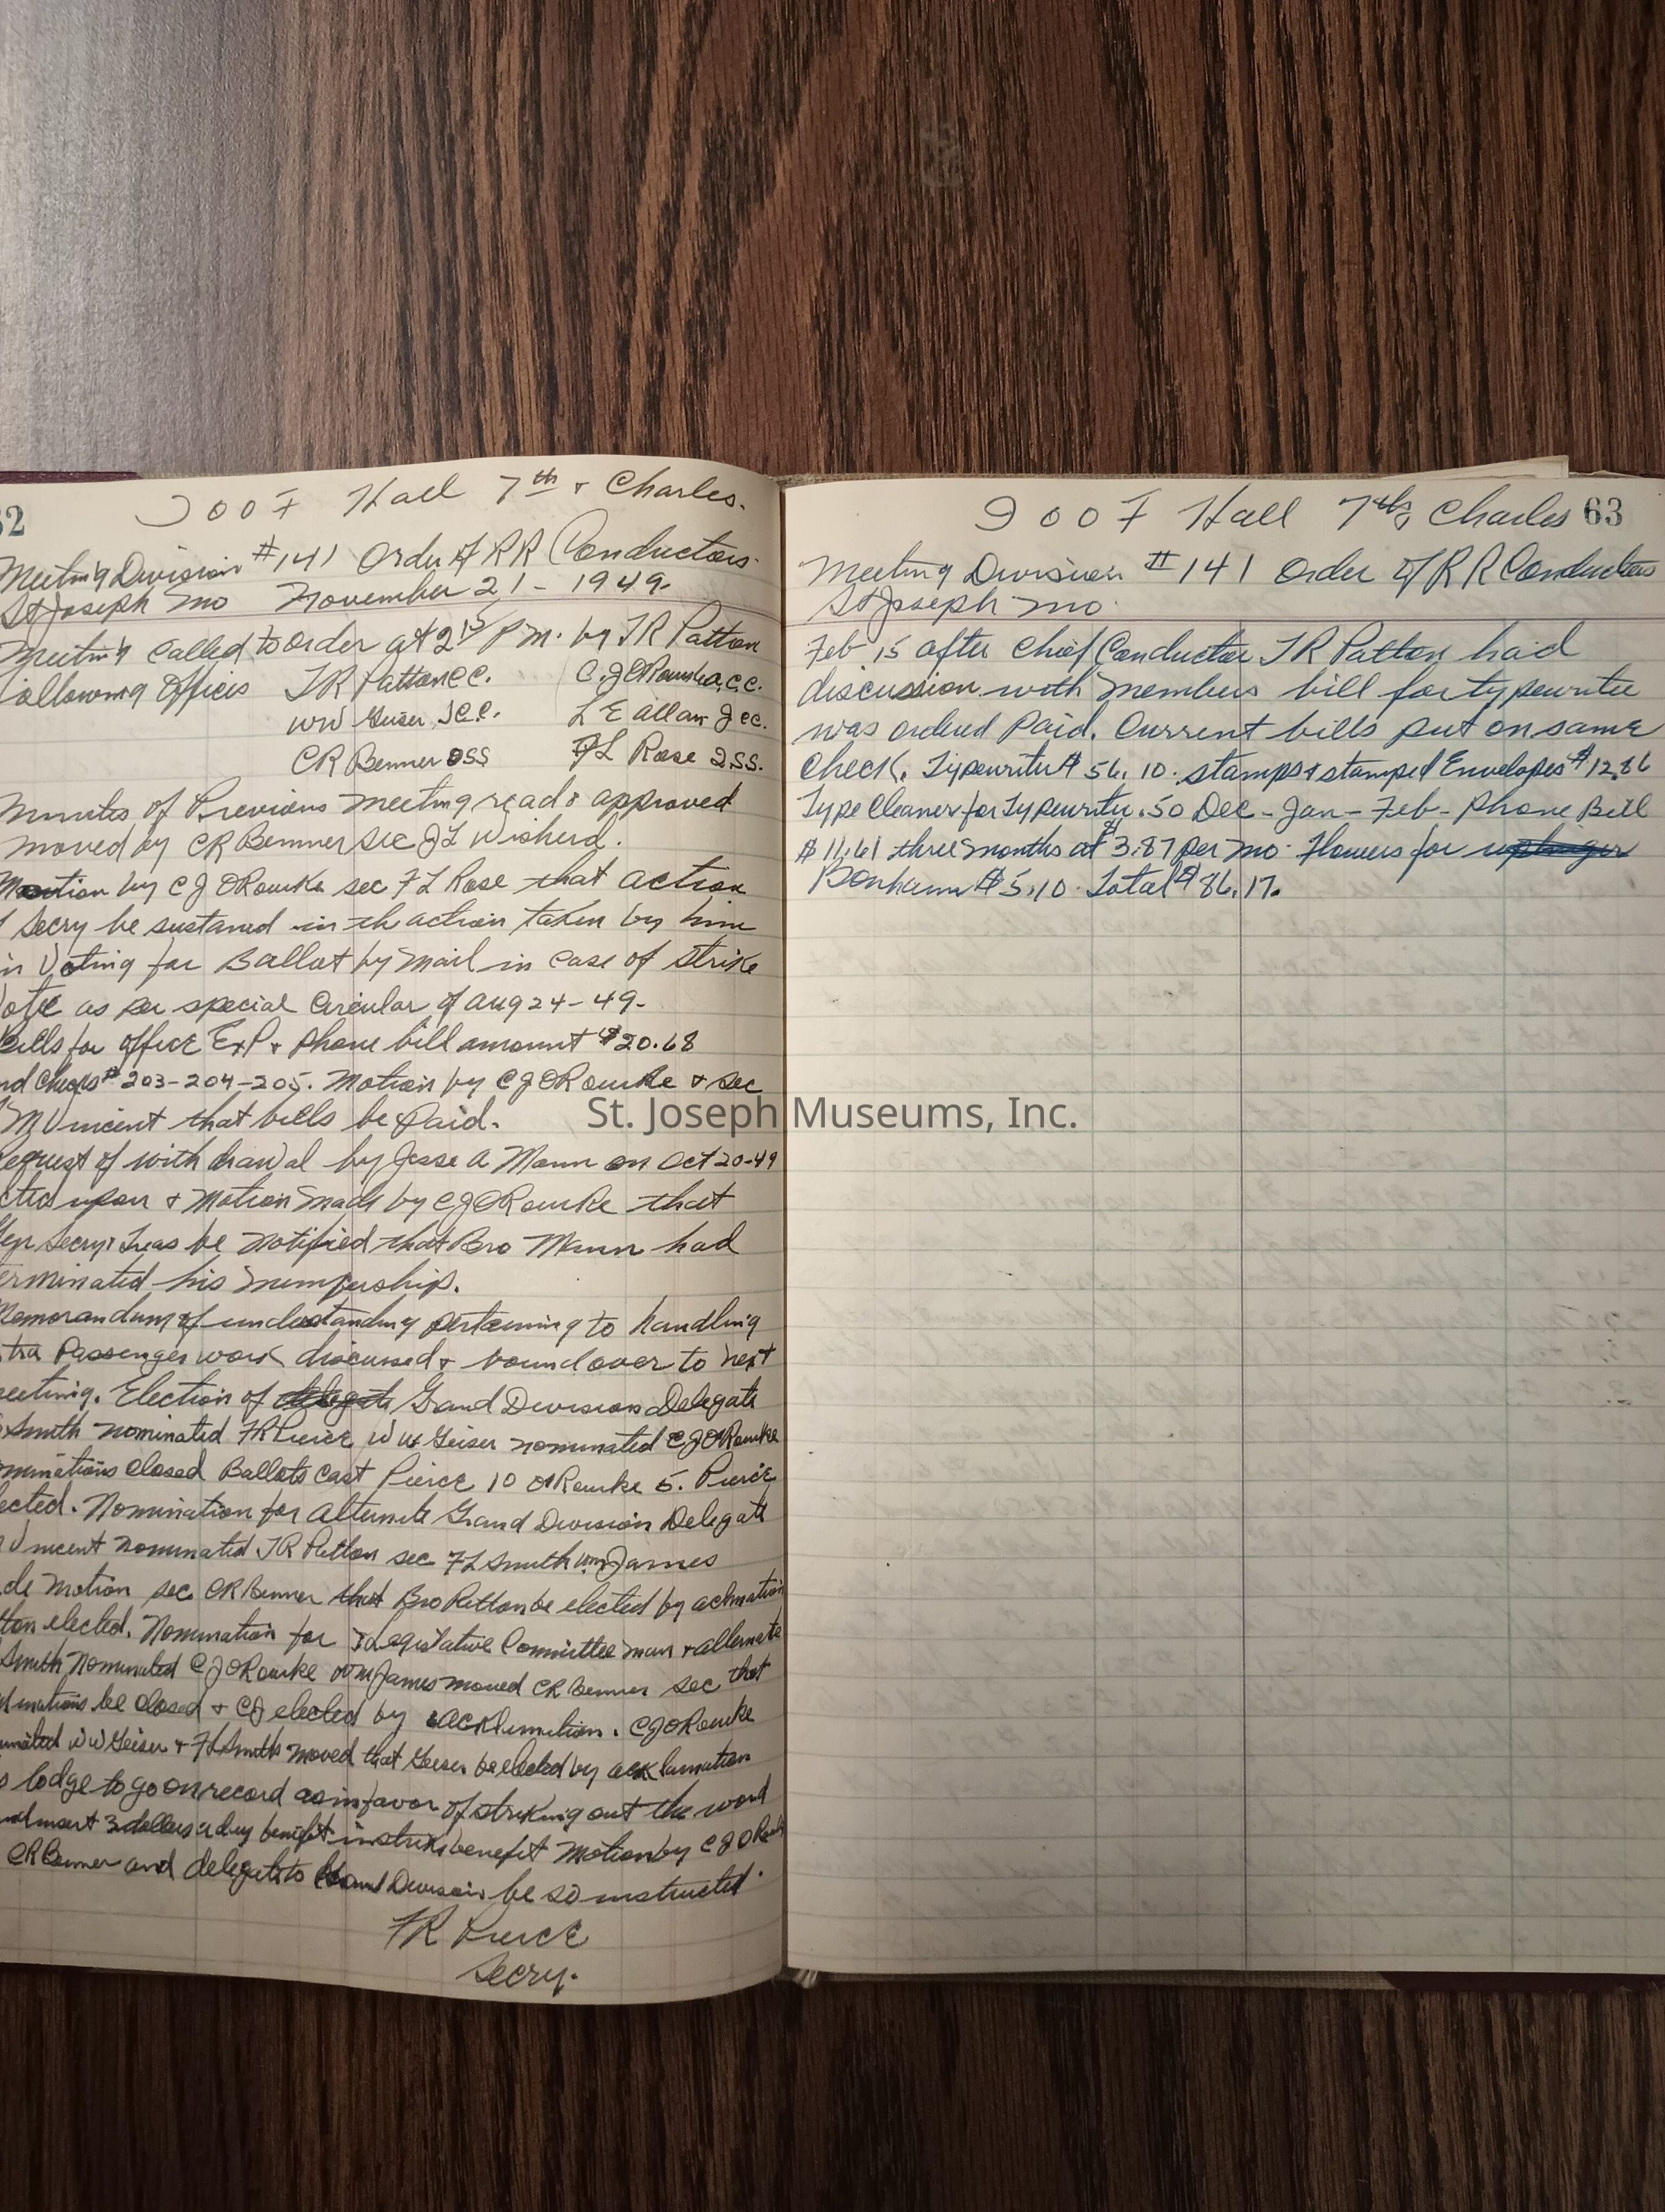 62
I O O F Hall 7th & Charles.
Meeting Division #141 Order of RR Conductors.
St Joseph Mo November 21 - 1949.
Meeting called to order at 2 15 P M. by JR Patton
following Offices JR Patton CC. C.J ORourke a.c.c.
WW Geiser S.C.C. L E Allan J cc.
CR Benner OSS FL Rose ISS.
Minutes of Previous meeting read & approved
moved by CR Benner sec JL Wisherd.
Motion by C J ORourke sec F L Rose that action
of Secry be sustaned in th action taken by him
in Voting for Ballot by mail in case of strike
Vote as per special Circular of Aug 24-49-
Bills for office Exp & phone bill amount $20.68
and cheqs # 203-204-205. Motion by CJ ORourke & sec
Vincent that bills be Paid.
Request of withdrawal by Jesse A Mann on Oct 20-49
acted upon & Motion made by CJ ORourke that
Gen Secry & Treas be notified that Bro Mann had
terminated his mempership.
Memorandum of understanding pertaining to handling
xtra Passenger work discussed & bound over to next
meeting. Election of delegate Grand Division Delegate
Smith nominated FR Pierce, WW Geiser nominated CJ ORourke
nominations closed Ballots cast Pierce 10 ORourke 5. Pierce
elected. Nomination for alternate Grand Division Delegate
Vincent nominated JR Patton sec FL Smith Wm James
made motion sec CR Benner that Bro Patton be elected by aclmation
Patton elected. Nomination for Legislative Committee man & alternate
Smith Nominated CJ ORourke Wm James moved CR Benner sec that
nominations be closed & CJ elected by acklimation. CJ ORourke
nominated WW Geiser & FL Smith moved that Geiser be elected by acklamation
lodge to go on record as in favor of striking out the word
3 dollars a day benefit in strike benefit Motion by C J ORourke
CR Benner and delegate to Grand Division be so instructed.
FR Pierce
Secry.
I O O F Hall 7th & Charles 63
Meeting Division #141 Order of RR Conductors
St Joseph Mo
Feb 15 after Chief Conductor JR Patton had
discussion with members bill for typewriter
was ordered Paid. Current bills put on same
check. Typewriter $56.10. stamps & stamped Envelopes $12.86
Type Cleaner for Typewriter .50 Dec - Jan - Feb - Phone Bill
$11.61 three months at $3.87 per mo. Flowers for
Bonham $5.10. Total $86.17.
St. Joseph Museums, Inc.